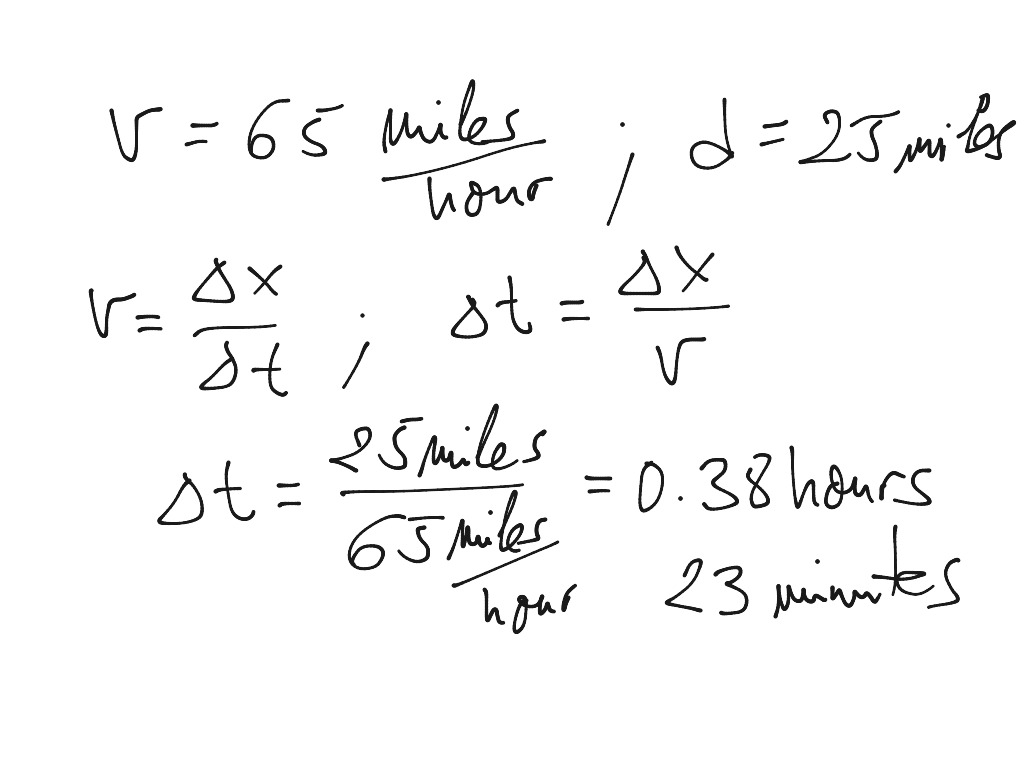 v = 65 miles/hour ; d = 25 miles
v = Δx/Δt ; Δt = Δx/v
Δt = 25 miles / 65 miles/hour = 0.38 hours
23 minutes